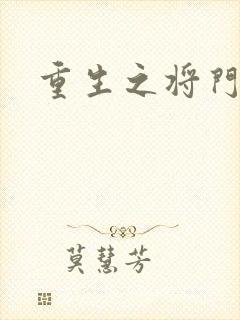 重生之将門
莫慧芳